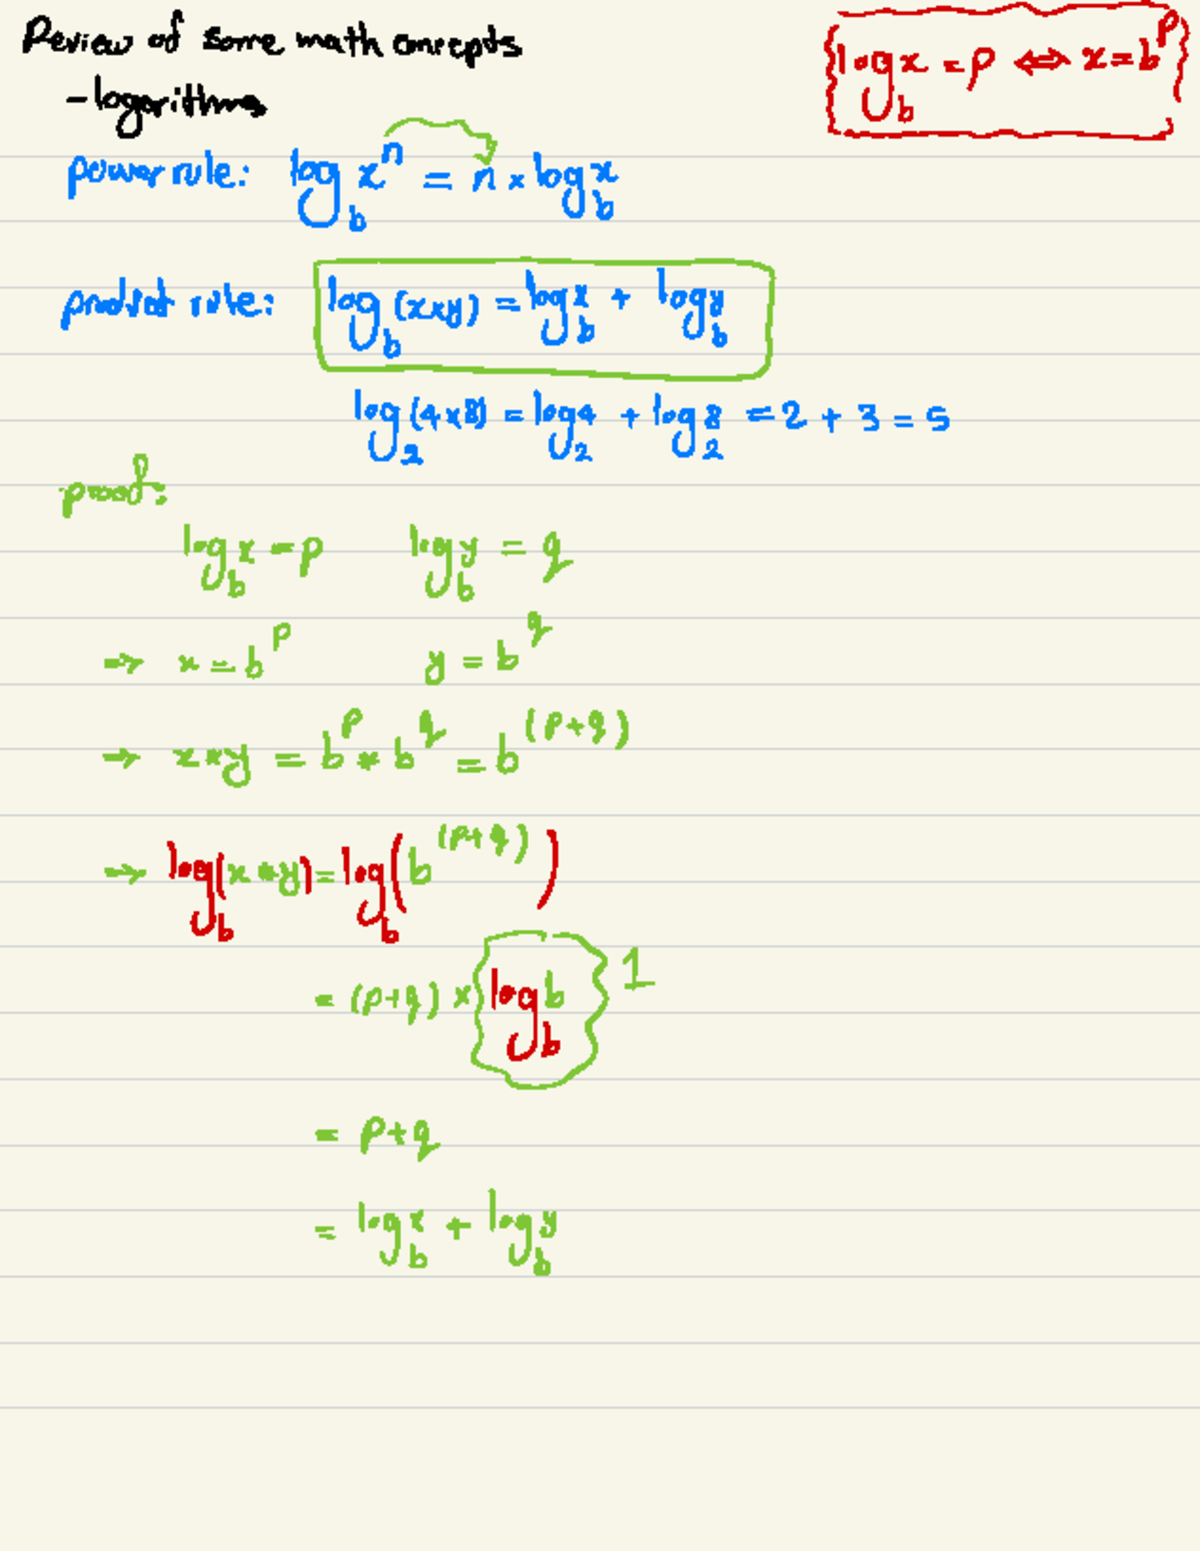 Review of some math concepts
log_b x = p ⇔ x = b^p
- logarithms
power rule: log_b x^n = n × log_b x
product rule: log_b (x×y) = log_b x + log_b y
log_2 (4×8) = log_2 4 + log_2 8 = 2 + 3 = 5
proof:
log_b x = p log_b y = q
⇒ x = b^p y = b^q
⇒ x*y = b^p * b^q = b^(p+q)
⇒ log_b (x*y) = log_b (b^(p+q))
= (p+q) × log_b b 1
= p+q
= log_b x + log_b y